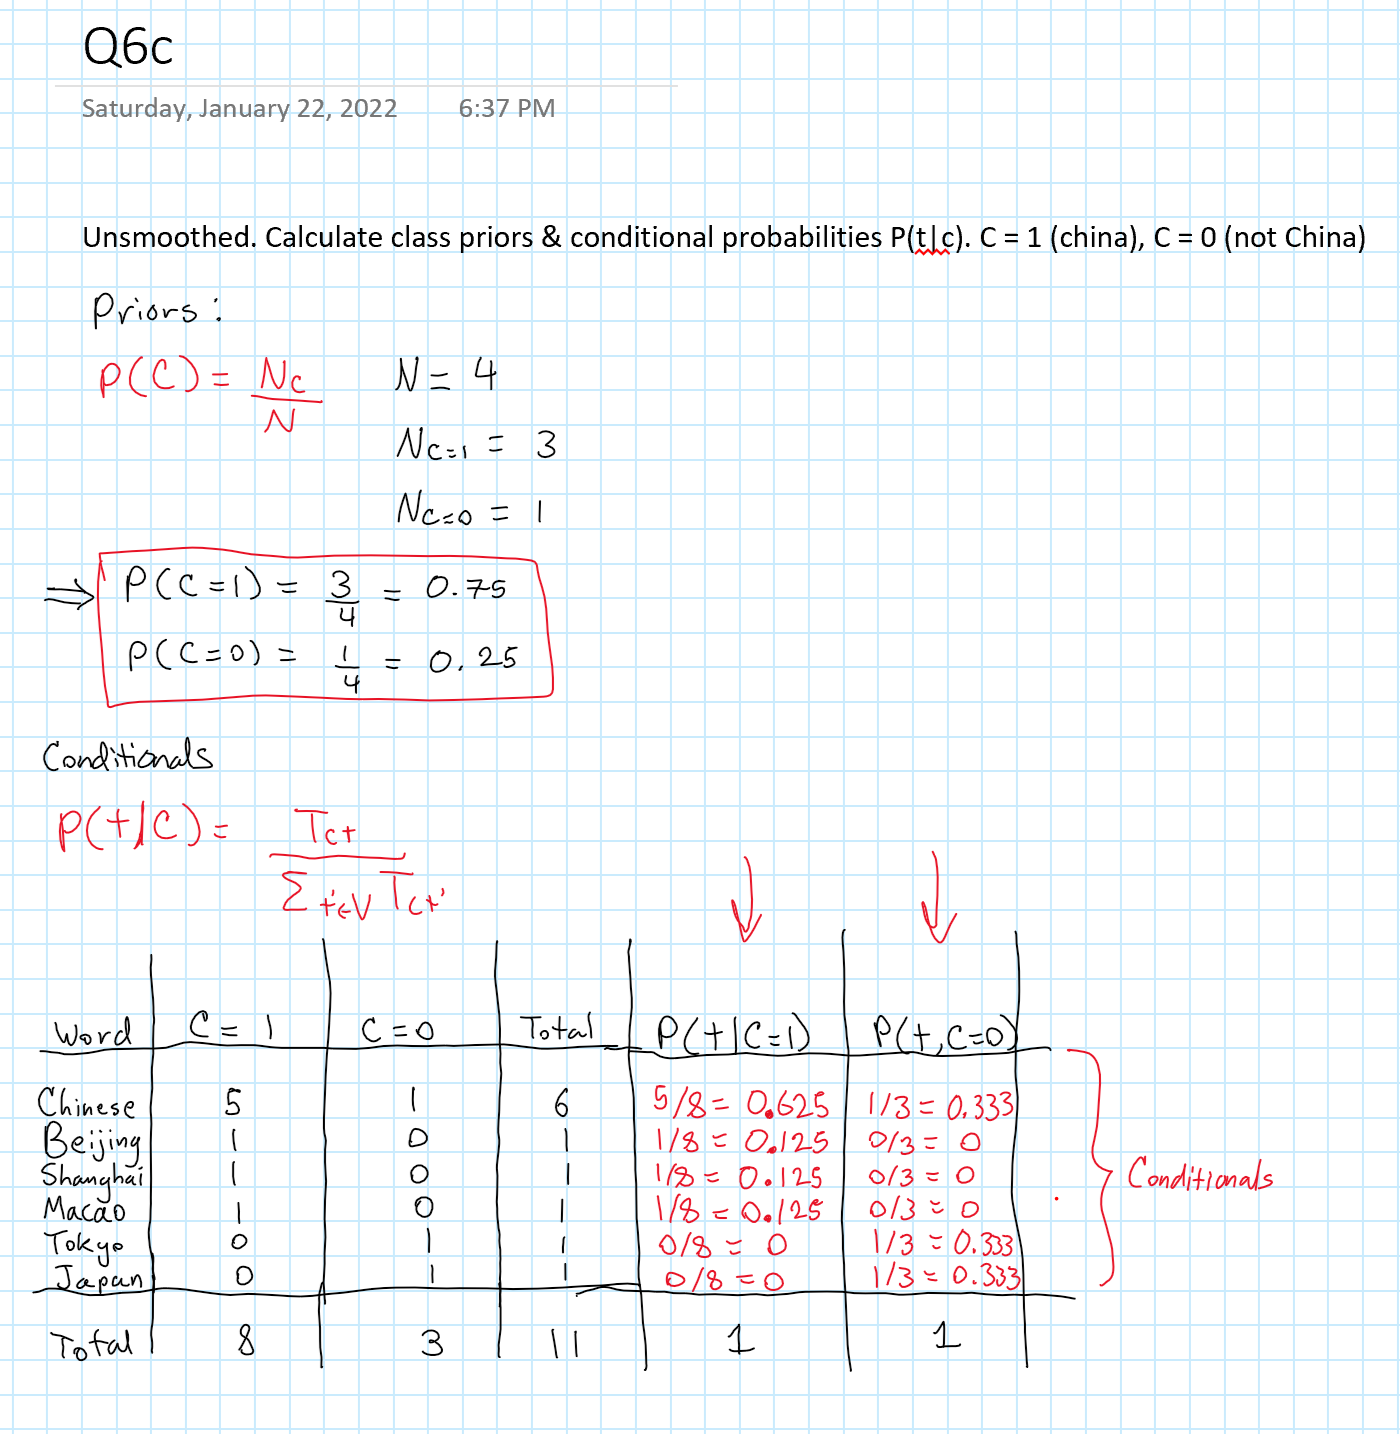 Q6c
Saturday, January 22, 2022 6:37 PM
Unsmoothed. Calculate class priors & conditional probabilities P(t|c). C = 1 (china), C = 0 (not China)
Priors:
P(C) = Nc/N N = 4
Nc=1 = 3
Nc=0 = 1
⇒ P(C=1) = 3/4 = 0.75
P(C=0) = 1/4 = 0.25
Conditionals
P(t|C) = Tct / Σt'∈V Tct'
Word C=1 C=0 Total P(t|C=1) P(t,C=0)
Chinese 5 1 6 5/8 = 0.625 1/3 = 0.333
Beijing 1 0 1 1/8 = 0.125 0/3 = 0
Shanghai 1 0 1 1/8 = 0.125 0/3 = 0
Macao 1 0 1 1/8 = 0.125 0/3 = 0
Tokyo 0 1 1 0/8 = 0 1/3 = 0.333
Japan 0 1 1 0/8 = 0 1/3 = 0.333
Conditionals
Total 8 3 11 1 1